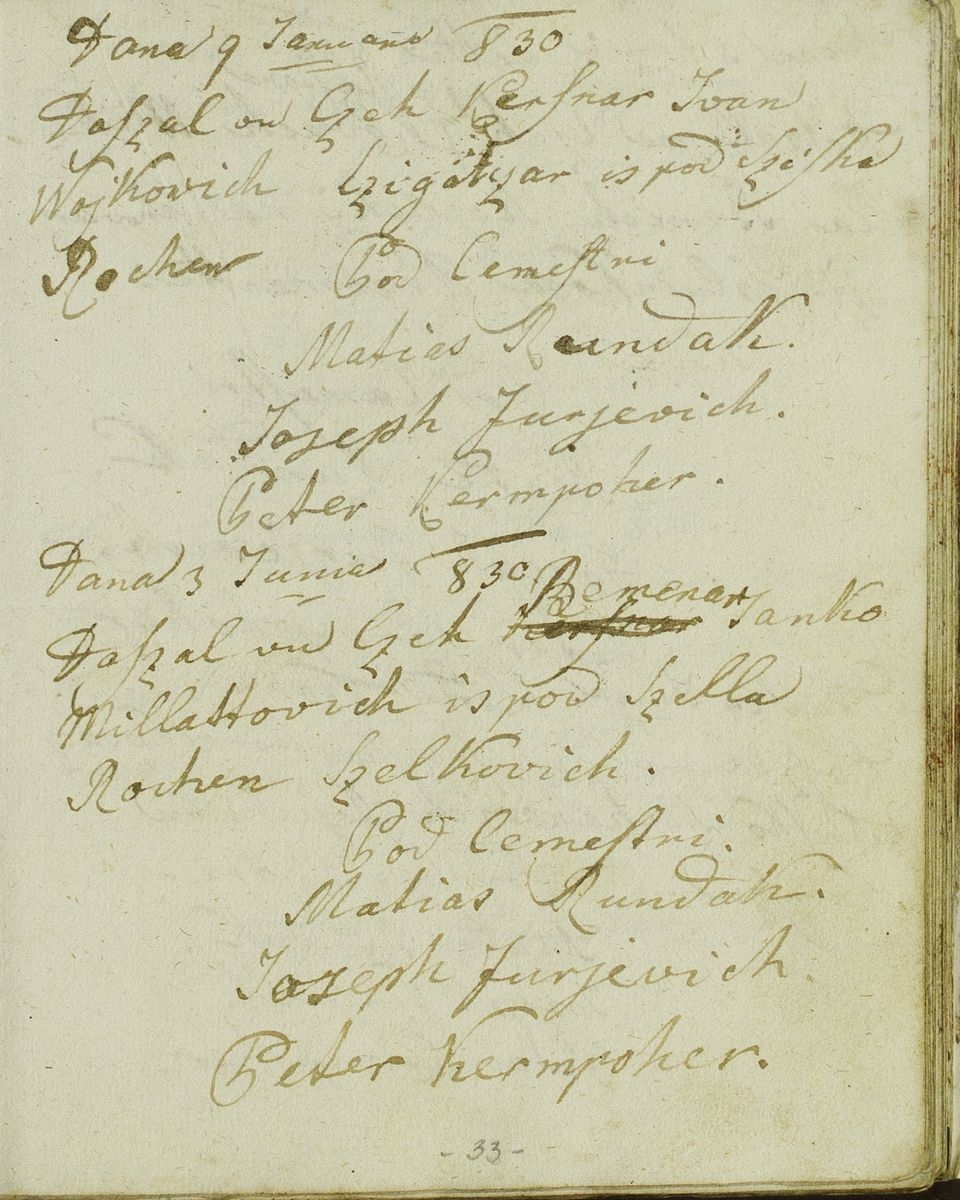 Dana 9 Januara 830
Daszal vu Czeh Kersnar Ivan
Wojkovich Czigatszar ispod Sziska
Rochen Pod Cemestri
Matias Rundak.
Joseph Jurjevich.
Peter Kermpoher.
Dana 3 Junia 830
Daszal vu Czeh Kersnar Remenar Janko
Millattovich ispod Szella
Rochen Szelkovich.
Pod Cemestri.
Matias Rundak.
Joseph Jurjevich.
Peter Kermpoher.
- 33 -